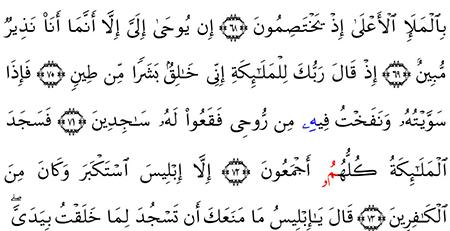 بِٱلْمَلَإِ ٱلْأَعْلَىٰ إِذْ يَخْتَصِمُونَ ﴿٦٨﴾ إِن يُوحَىٰ إِلَىَّ إِلَّا أَنَّمَا أَنَا۠ نَذِيرٌ
مُّبِينٌ ﴿٦٩﴾ إِذْ قَالَ رَبُّكَ لِلْمَلَٰٓئِكَةِ إِنِّى خَٰلِقٌۢ بَشَرًا مِّن طِينٍ ﴿٧٠﴾ فَإِذَا
سَوَّيْتُهُۥ وَنَفَخْتُ فِيهِۦ مِن رُّوحِى فَقَعُوا۟ لَهُۥ سَٰجِدِينَ ﴿٧١﴾ فَسَجَدَ
ٱلْمَلَٰٓئِكَةُ كُلُّهُمُۥ أَجْمَعُونَ ﴿٧٢﴾ إِلَّا إِبْلِيسَ ٱسْتَكْبَرَ وَكَانَ مِنَ
ٱلْكَٰفِرِينَ ﴿٧٣﴾ قَالَ يَٰإِبْلِيسُ مَا مَنَعَكَ أَن تَسْجُدَ لِمَا خَلَقْتُ بِيَدَىَّۖ